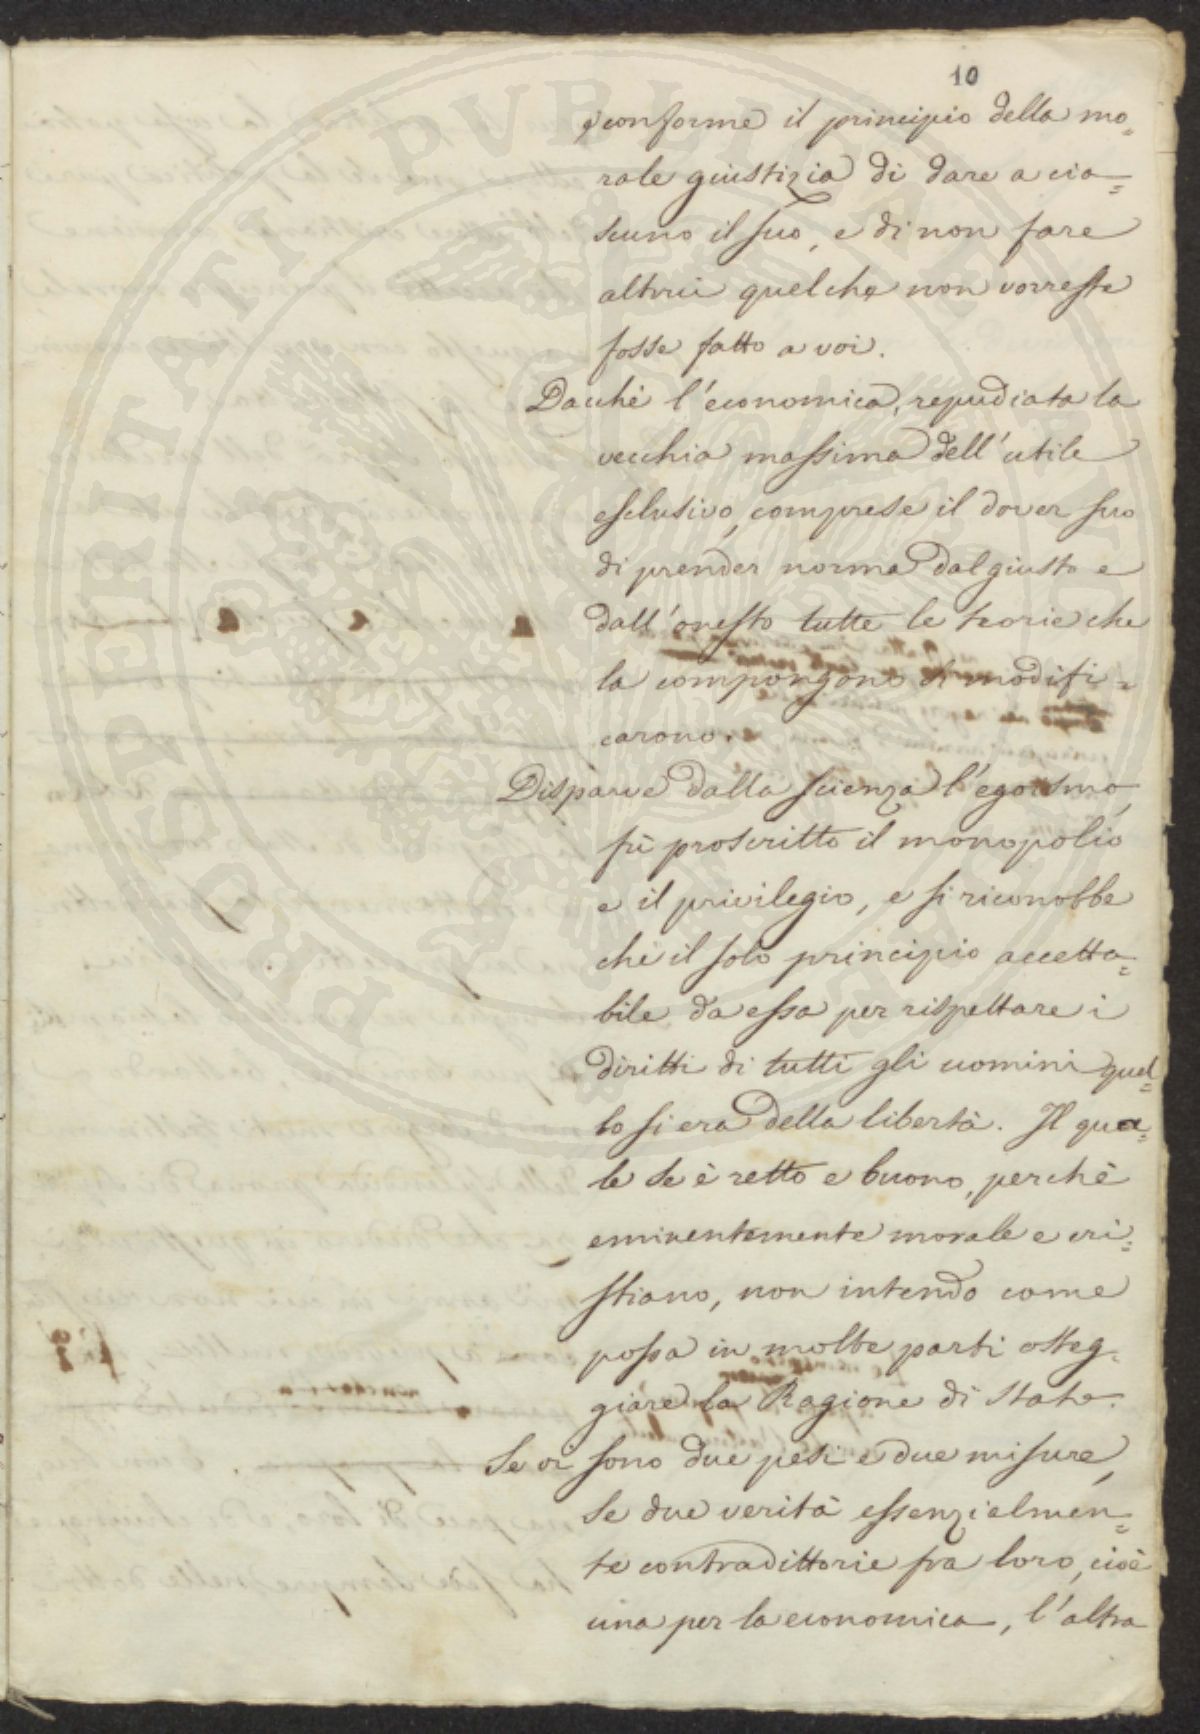 10
conforme il principio della mo=
rale giustizia di dare a cia=
scuno il suo, e di non fare
altrui quelche non vorreste
fosse fatto a voi.
Dacchè l'economica, repudiata la
vecchia massima dell'utile
esclusivo, comprese il dover suo
di prender norma dal giusto e
dall'onesto tutte le teorie che
la compongono si modifi=
carono.
Disparve dalla scienza l'egoismo,
fù proscritto il monopolio
e il privilegio, e si riconobbe
che il solo principio accetta=
bile da essa per rispettare i
diritti di tutti gli uomini quel=
lo si era della libertà. Il qua=
le se è retto e buono, perchè
eminentemente morale e cri=
stiano, non intendo come
possa in molte parti osteg=
giare la Ragione di Stato.
Se vi sono due pesi e due misure,
se due verità essenzielmen=
te contradittorie fra loro, cioè
una per la economica, l'altra
PROSPERITATI PVBLICAE